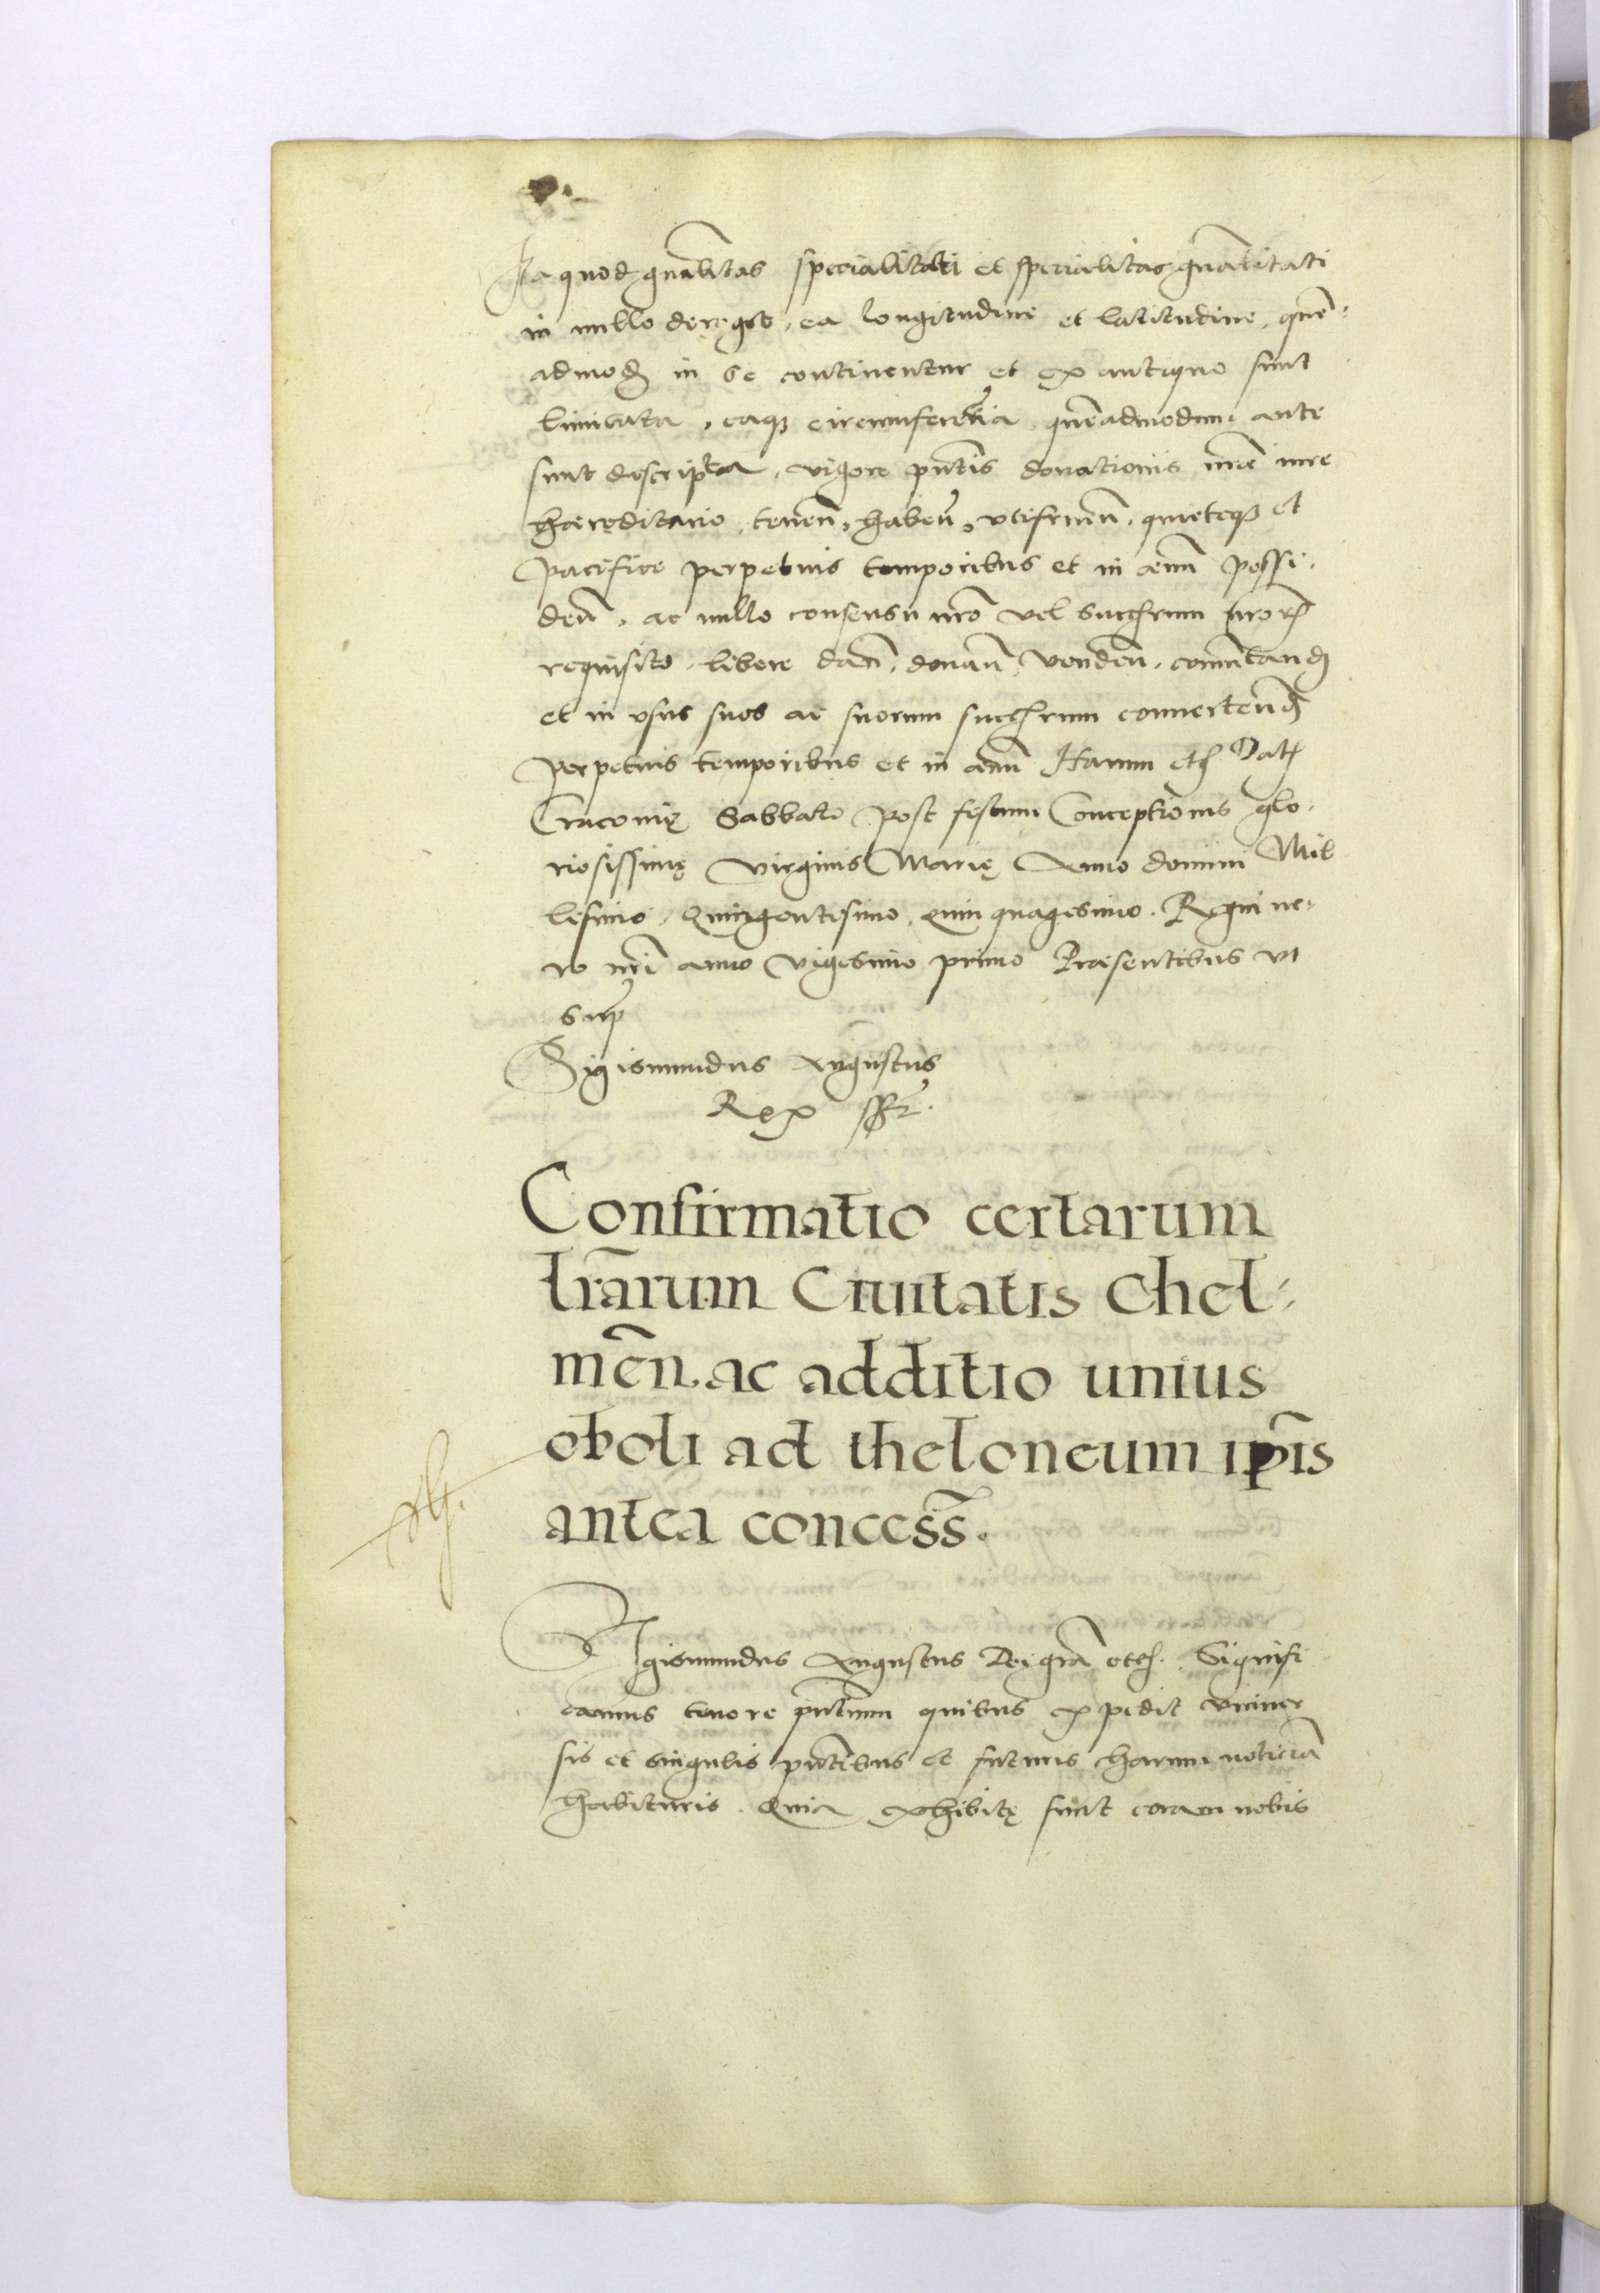 Ita quod gnālitas specialitati et specialitas gnālitati
in nullo deroget, ea longitudine et latitudine, quē-
admod in se continentur et ex antiquo sunt
limitata, eaq circumferētia quēadmodum ante
sunt descripta, vigore pntis donationis nrē iure
hæreditario tenen, haben, utifruen, quieteq et
pacifice perpetuis temporibus et in ævum possi-
den, ac nullo consensu nro vel succhrum nror
requisito, libere dan, donan, venden, comutand
et in usus suos ac suorum succhrum convertend
perpetuis temporibus et in ævum Harum etc Dat
Cracovię Sabbato post festum Conceptionis glo-
riosissimę virginis Marię Anno domini Mil
lesimo, Quingentesimo, quinquagesimo. Regni ve-
ro nri anno vigesimo primo Præsentibus ut
sup
Sigismundus Augustus
Rex sst.
Confirmatio certarum
lrārum Ciuitatis Chel-
mēn. ac additio unius
oboli ad theloneum ipīs
antea concess.
Sigismundus Augustus Dei gra etc. Signifi
camus tenore pntium quibus expedit vniuer
sis et singulis pntibus et futuris harum noticiā
habituris. Quia exhibitę sunt coram nobis